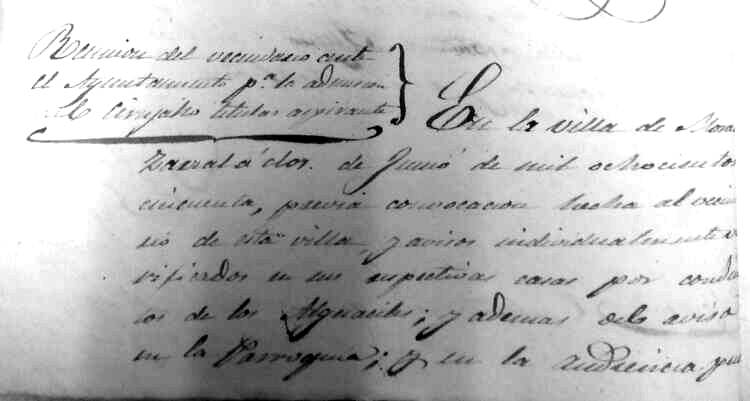 Reunion del vecindario ante
el Ayuntamiento pª. la admision
del Cirujano titular aspirante
En la villa de Mora
Zarzal á dos. de Junio de mil ochocientos
cincuenta, previa convocacion hecha al vecin
rio de esta villa, y avisos individualmente ve
rificados en sus respectivas casas por conduc
tos de los Alguaciles; y ademas del aviso
en la Parroquia; y en la audiencia